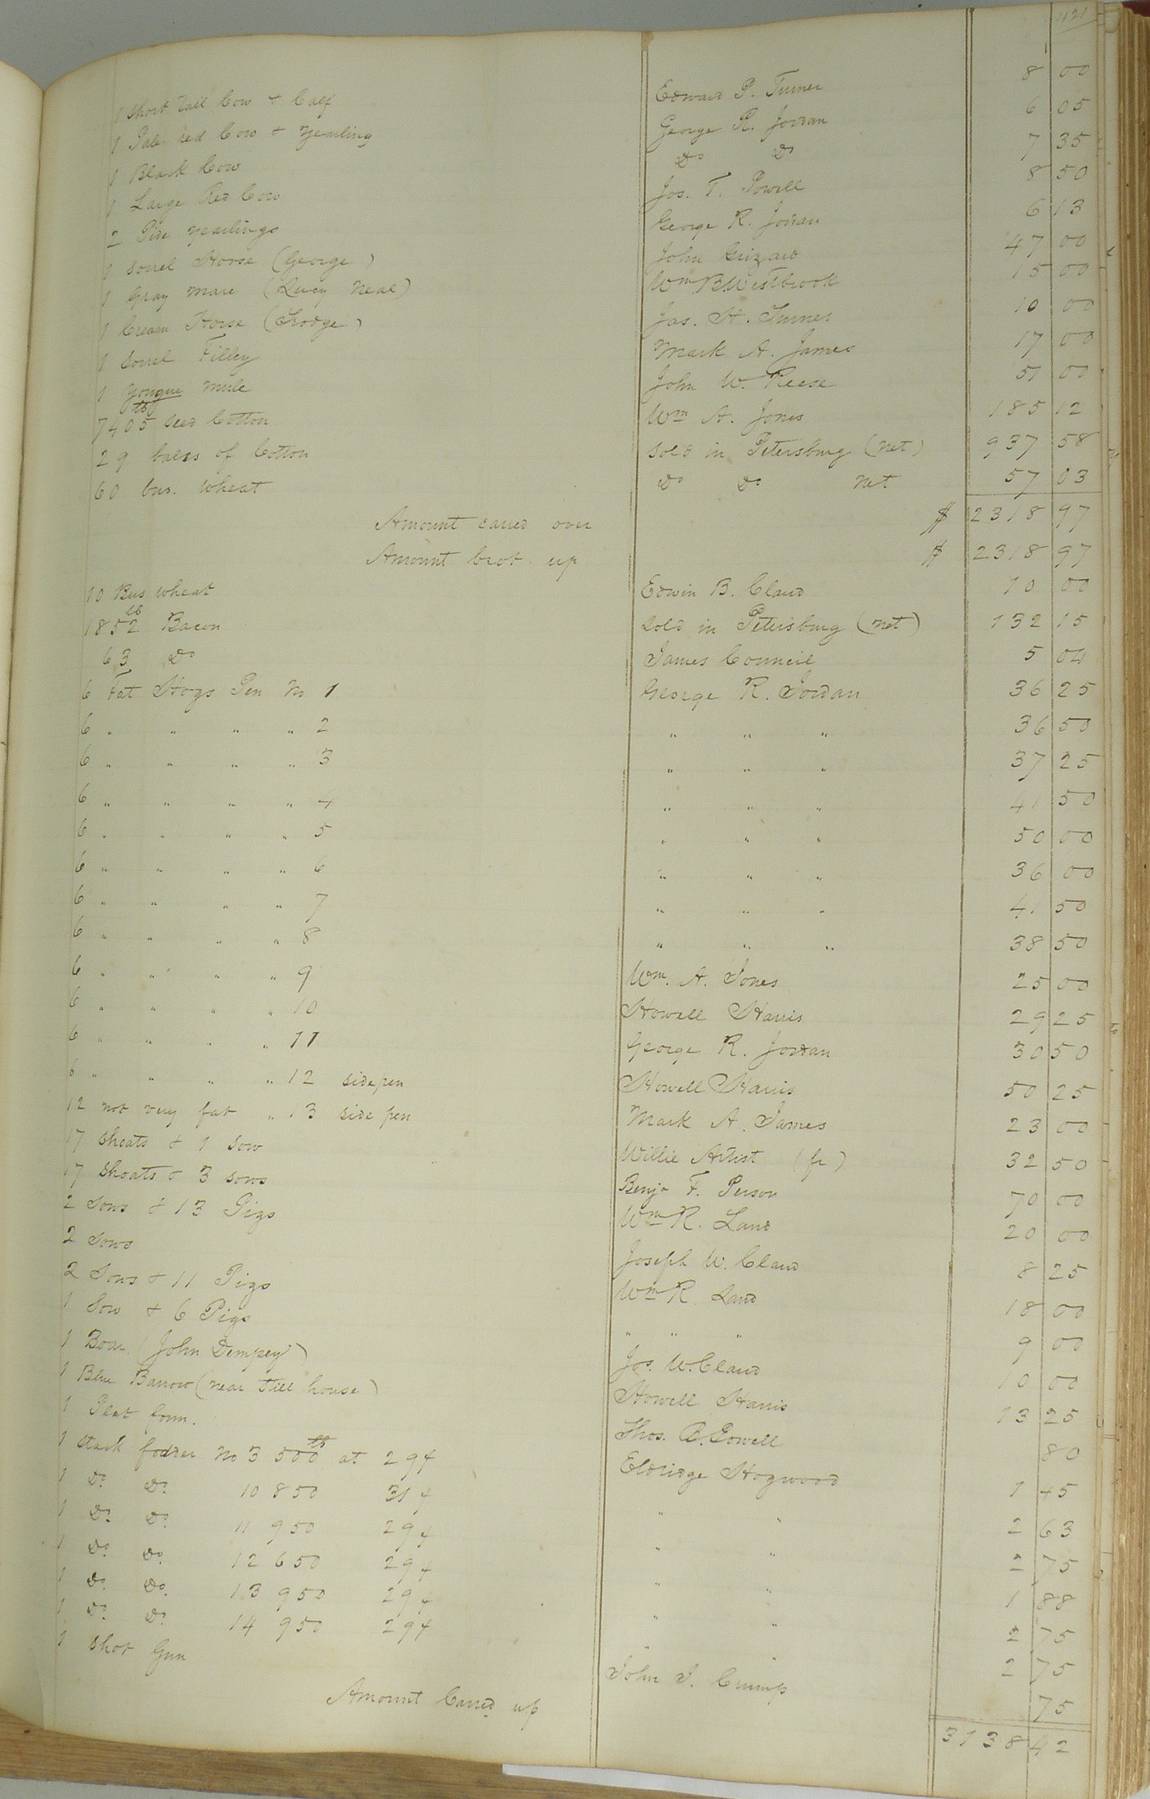 1 Short Tail Cow & Calf Edward P. Turner 8 00
1 Pale red Cow & yearling George R. Jordan 6 05
1 Black Cow Do Do 7 35
1 Large Red Cow Jos. T. Powell 8 50
2 Pide yearlings George R. Jordan 6 13
1 Sorrel Horse (George) John Grizard 47 00
1 Gray mare (Lucy Neal) Wm B. Westbrook 15 00
1 Cream Horse (Dodge) Jas. H. Turner 10 00
1 Sorrel Filley Mark A. James 17 00
1 yongue mule John W. Reese 51 00
7405 lb seed Cotton Wm A. Jones 185 12
29 bales of Cotton sold in Petersburg (net) 937 58
60 bus. wheat Do Do net 57 03
Amount caried over $ 2318 97
Amount brot. up $ 2318 97
10 Bus wheat Edwin B. Claud 10 00
1852 lb Bacon sold in Petersburg (net) 132 15
63 Do James Council 5 04
6 Fat Hogs Pen No 1 George R. Jordan 36 25
6 " " " " 2 " " " 36 50
6 " " " " 3 " " " 37 25
6 " " " " 4 " " " 41 50
6 " " " " 5 " " " 50 00
6 " " " " 6 " " " 36 00
6 " " " " 7 " " " 41 50
6 " " " " 8 " " " 38 50
6 " " " " 9 Wm. A. Jones 25 00
6 " " " " 10 Howell Harris 29 25
6 " " " " 11 George R. Jordan 30 50
6 " " " " 12 side pen Howell Harris 50 25
12 not very fat " 13 side pen Mark A. James 23 00
17 Shoats & 1 Sow Willie Artist (fr) 32 50
17 Shoats & 3 sows Benja F. Person 70 00
2 Sows & 13 Pigs Wm R. Land 20 00
2 Sows Joseph W. Claud 8 25
2 Sows & 11 Pigs Wm R. Land 18 00
1 Sow & 6 Pigs " " " 9 00
1 Boar (John Dempey) Jos. W. Claud 10 00
1 Blue Barrow (near Still house) Howell Harris 13 25
1 Plat form. Thos. B. Powell 80
1 Stack fodder No 3 500 lb at 29¢ Eldridge Hogwood 1 45
1 Do. Do. 10 850 31¢ " " 2 63
1 Do. Do. 11 950 29¢ " " 2 75
1 Do. Do. 12 650 29¢ " " 1 88
1 Do. Do. 13 950 29¢ " " 2 75
1 Do. Do. 14 950 29¢ " " 2 75
1 Shot Gun John J. Crump 75
Amount Carred up 3138 42